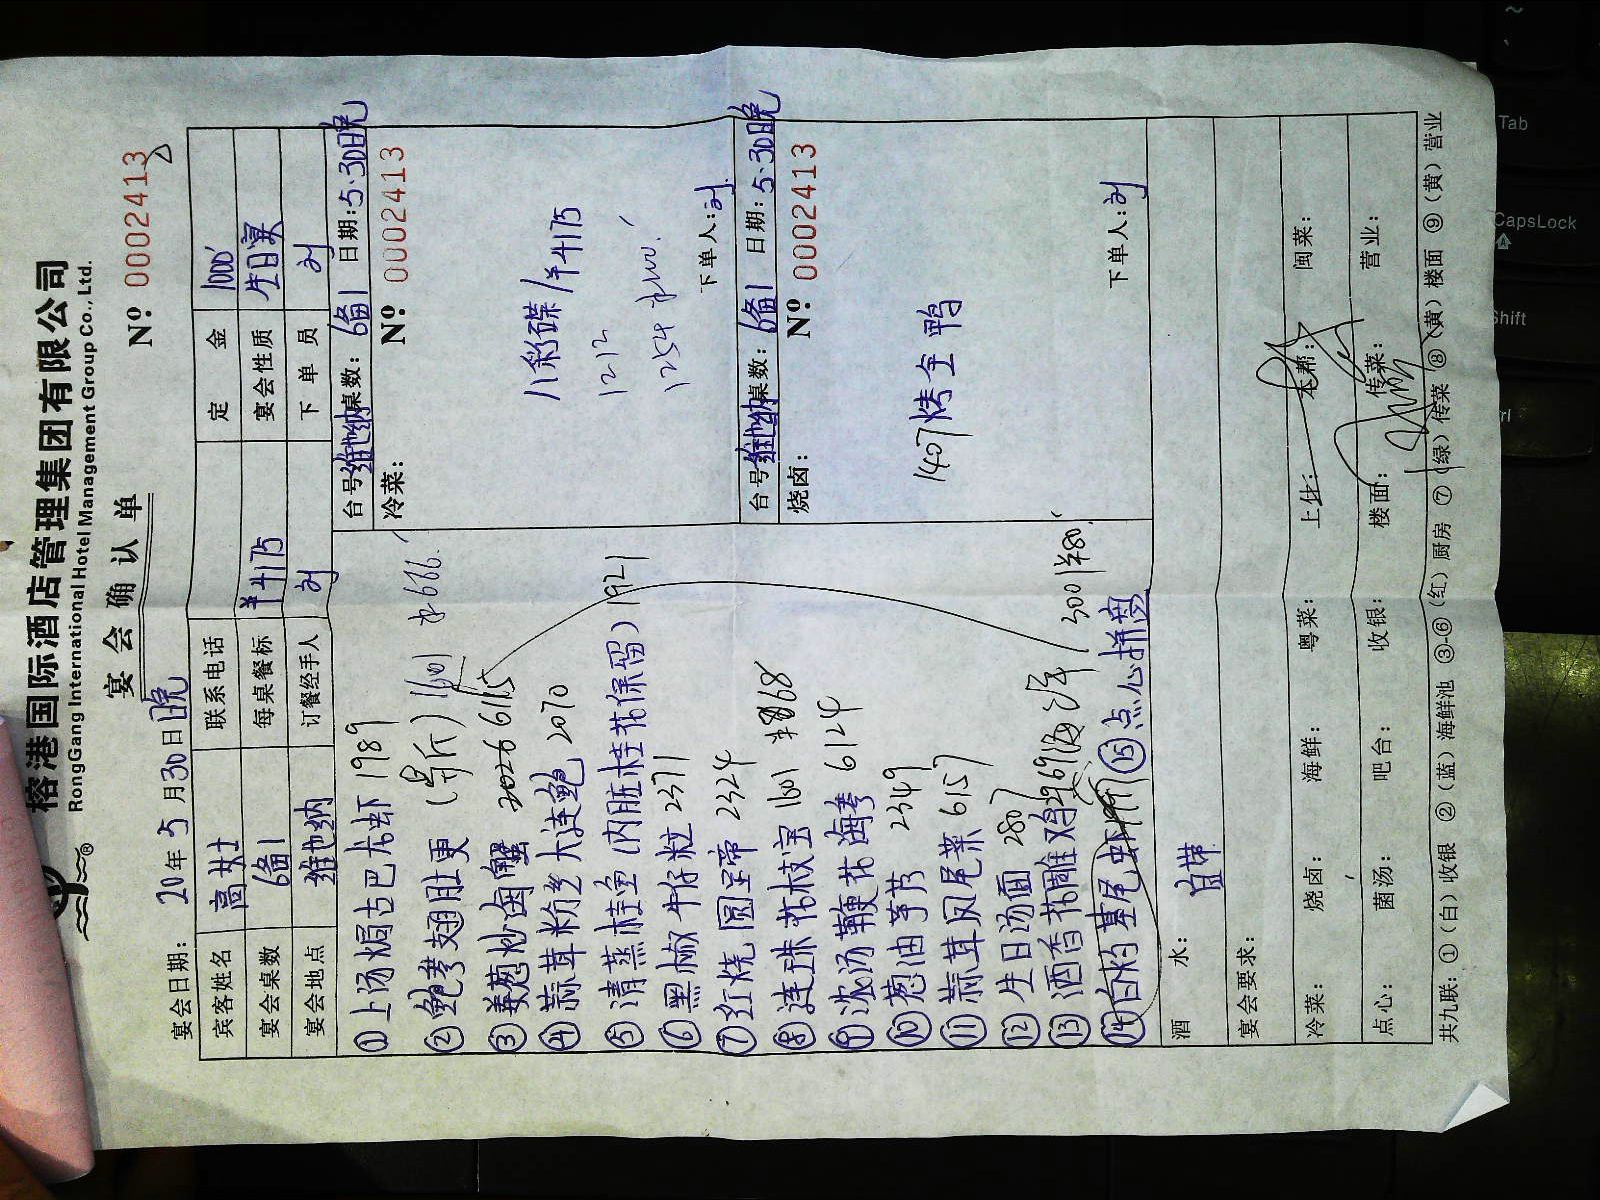 榕港国际酒店管理集团有限公司
RongGang International Hotel Management Group Co., Ltd.
宴会确认单
宴会日期: 20年5月30日晚
Nº 0002413
宾客姓名 高女士 联系电话 定金 1000
宴会桌数 6备1 每桌餐标 ¥4175 宴会性质 生日宴
宴会地点 维也纳 订餐经手人 刘 下单员 刘
①上汤焗古巴龙虾 1989
②鲍参翅肚更 1601 ¥666
③姜葱炒海蟹 2026 6115
④蒜茸粉丝大连鲍 2070
⑤清蒸桂鱼(内脏桂花保留) 1921
⑥黑椒牛仔粒 2371
⑦红烧圆蹄 2324
⑧连珠花枝宝 1601 ¥168
⑨浓汤鞭花海参 6124
⑩葱油芋艿 2349
⑪蒜茸凤尾菜 6157
⑫生日汤面 2807
⑬酒香花雕鸡
⑭白灼基尾虾
⑮点心拼盘 3001 ¥80
台号: 维也纳 桌数: 6备1 日期: 5.30日晚
冷菜:
Nº: 0002413
八彩碟 / ¥4175
1212
1254
下单人: 刘
台号: 维也纳 桌数: 6备1 日期: 5.30日晚
烧卤:
Nº: 0002413
1407 烤全鸭
下单人: 刘
酒水: 自带
宴会要求:
冷菜: 烧卤: 海鲜: 粤菜: 上什: 本帮: 闽菜:
点心: 菌汤: 吧台: 收银: 楼面: 传菜: 营业:
共九联: ①(白)收银 ②(蓝)海鲜池 ③-⑥(红)厨房 ⑦(绿)传菜 ⑧(黄)楼面 ⑨(黄)营业
Tab
CapsLock
Shift